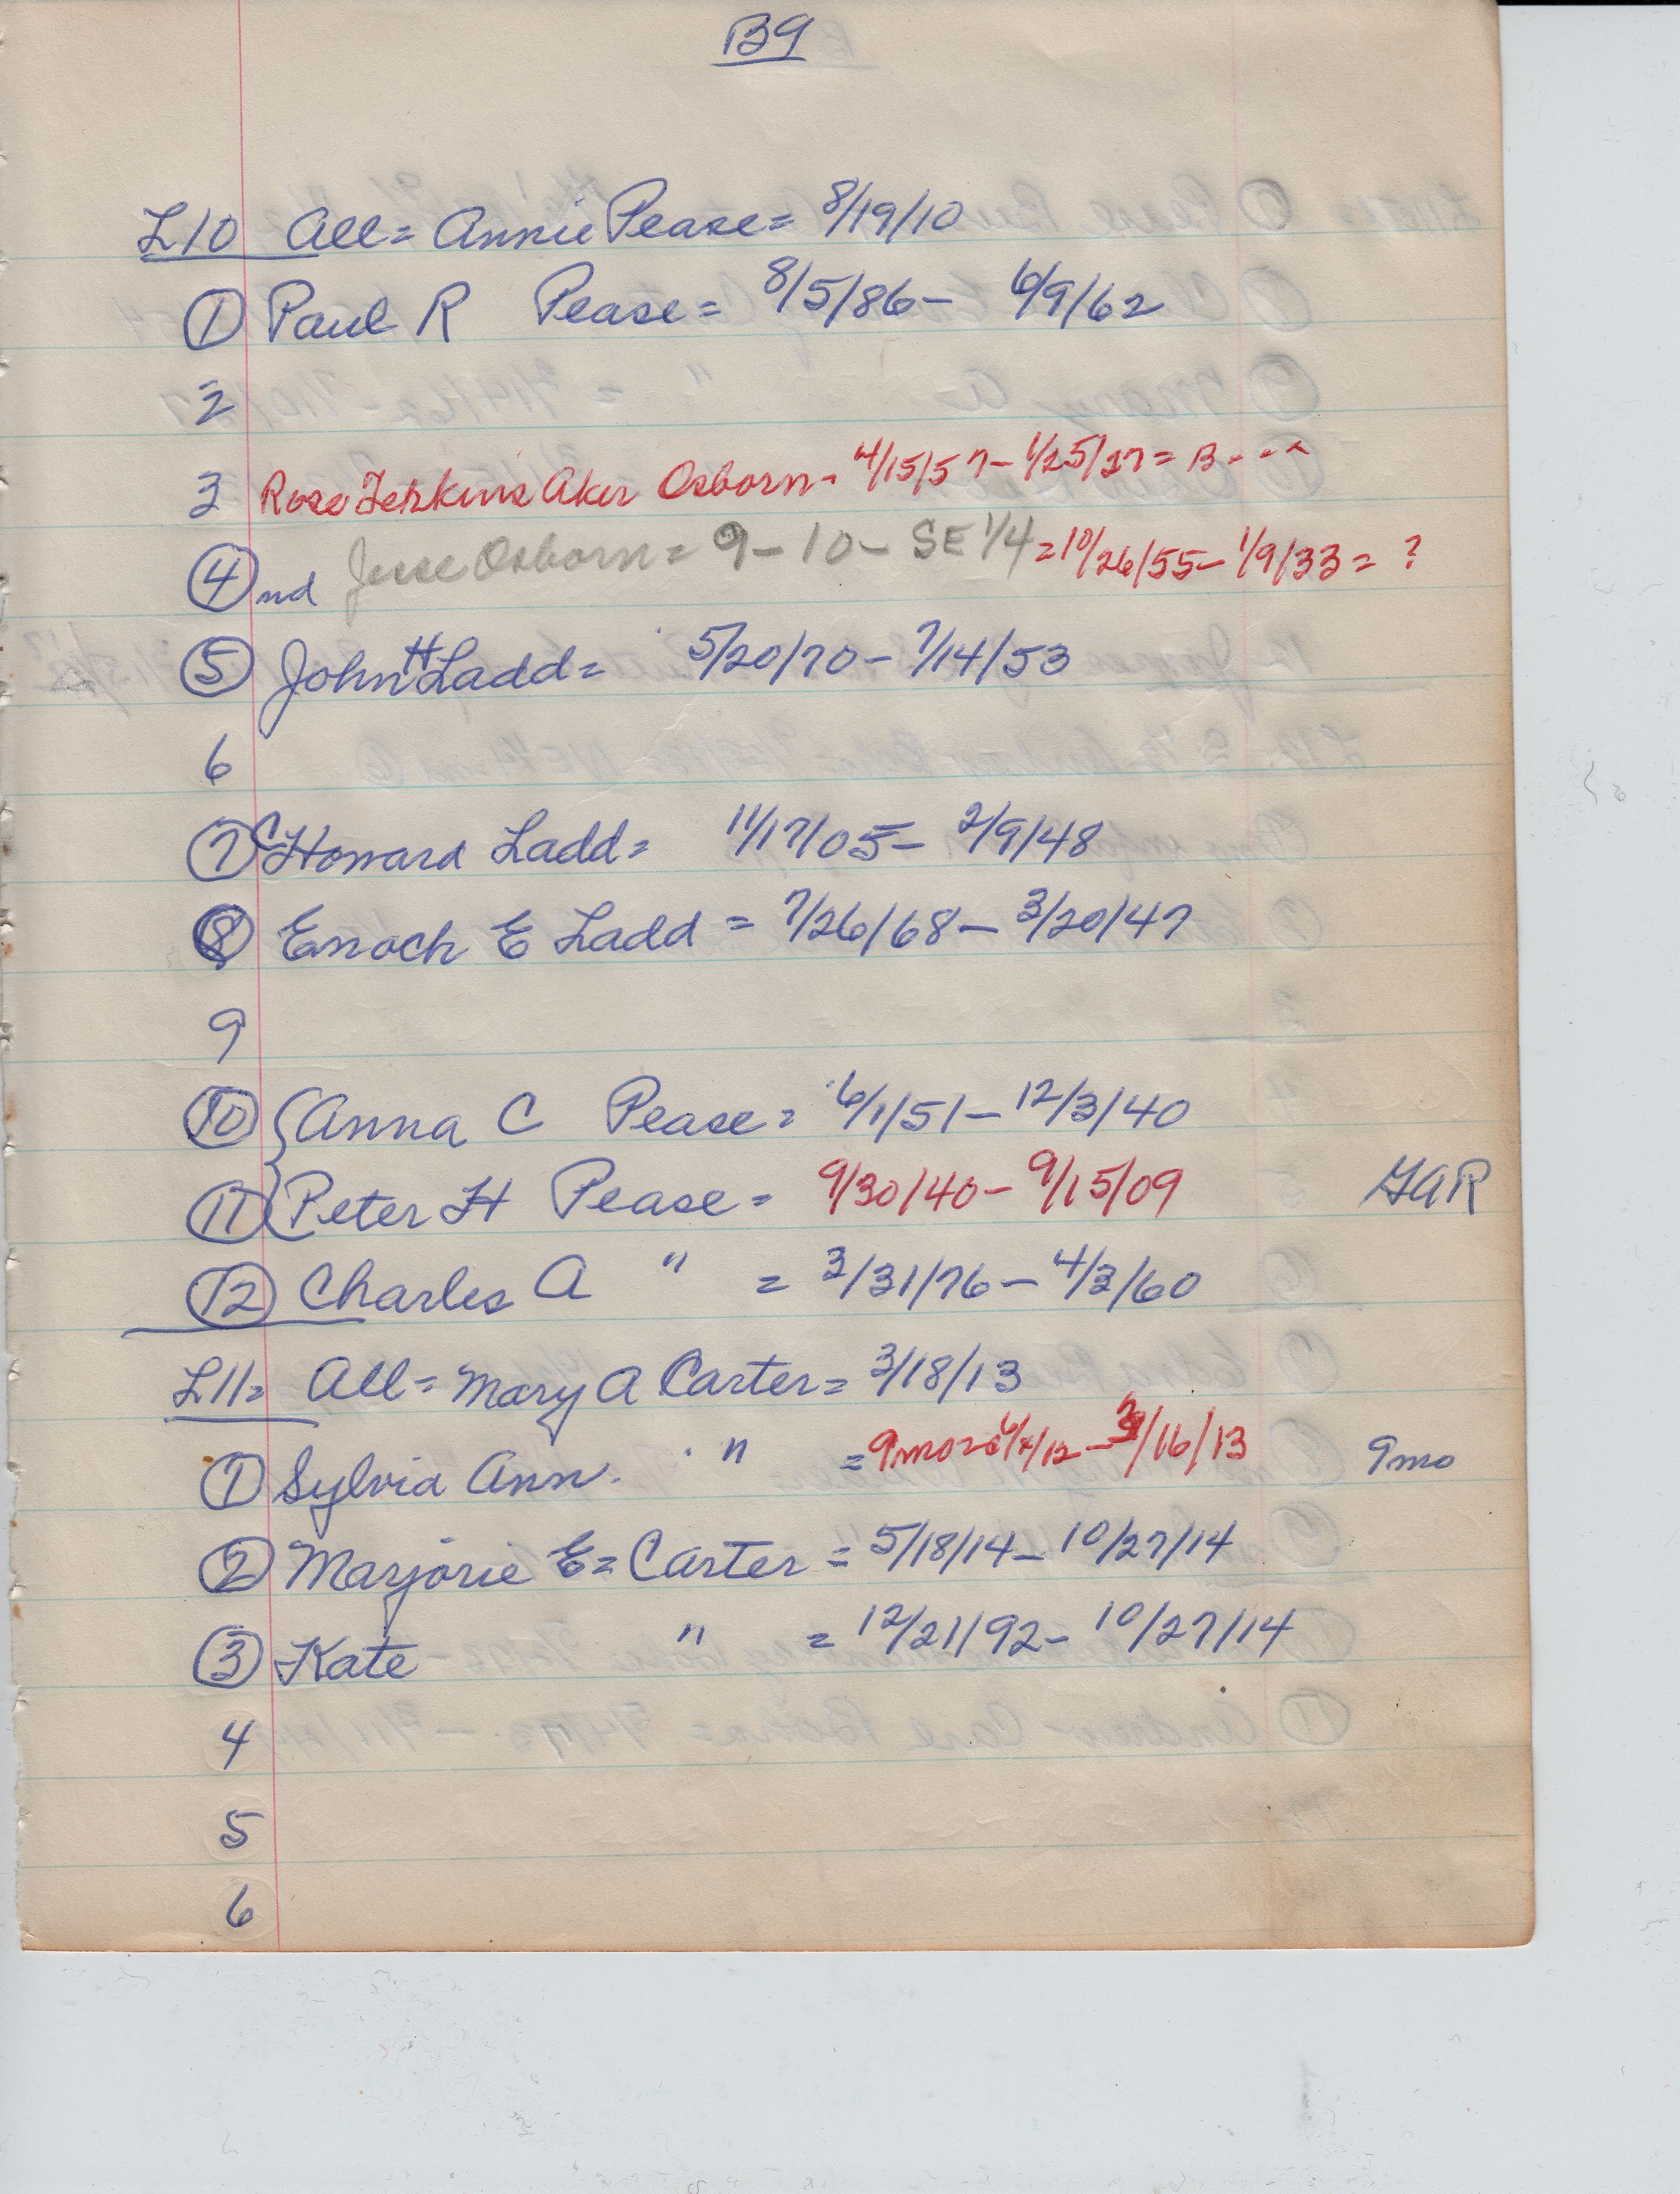 B9
L10 All = Annie Pease = 8/19/10
① Paul R Pease = 8/5/86 - 6/9/62
2
3 Rose Aker Osborn - 4/15/57 - 1/25/27 = B - - -
④ nd Jesse Osborn = 9 - 10 - SE 1/4 = 10/26/55 - 1/9/33 = ?
⑤ John H Ladd = 5/20/70 - 7/14/53
6
⑦ C Howard Ladd = 11/17/05 - 2/9/48
⑧ Enoch E Ladd = 7/26/68 - 3/20/47
9
⑩ { Anna C Pease = 6/1/51 - 12/3/40
⑪ { Peter H Pease = 9/30/40 - 9/15/09 GAR
⑫ Charles A " = 3/31/76 - 4/3/60
L11 = All = Mary A Carter = 3/18/13
① Sylvia Ann " = 9mo = 3/16/13 9mo
② Marjorie E = Carter = 5/18/14 - 10/27/14
③ Kate " = 12/21/92 - 10/27/14
4
5
6